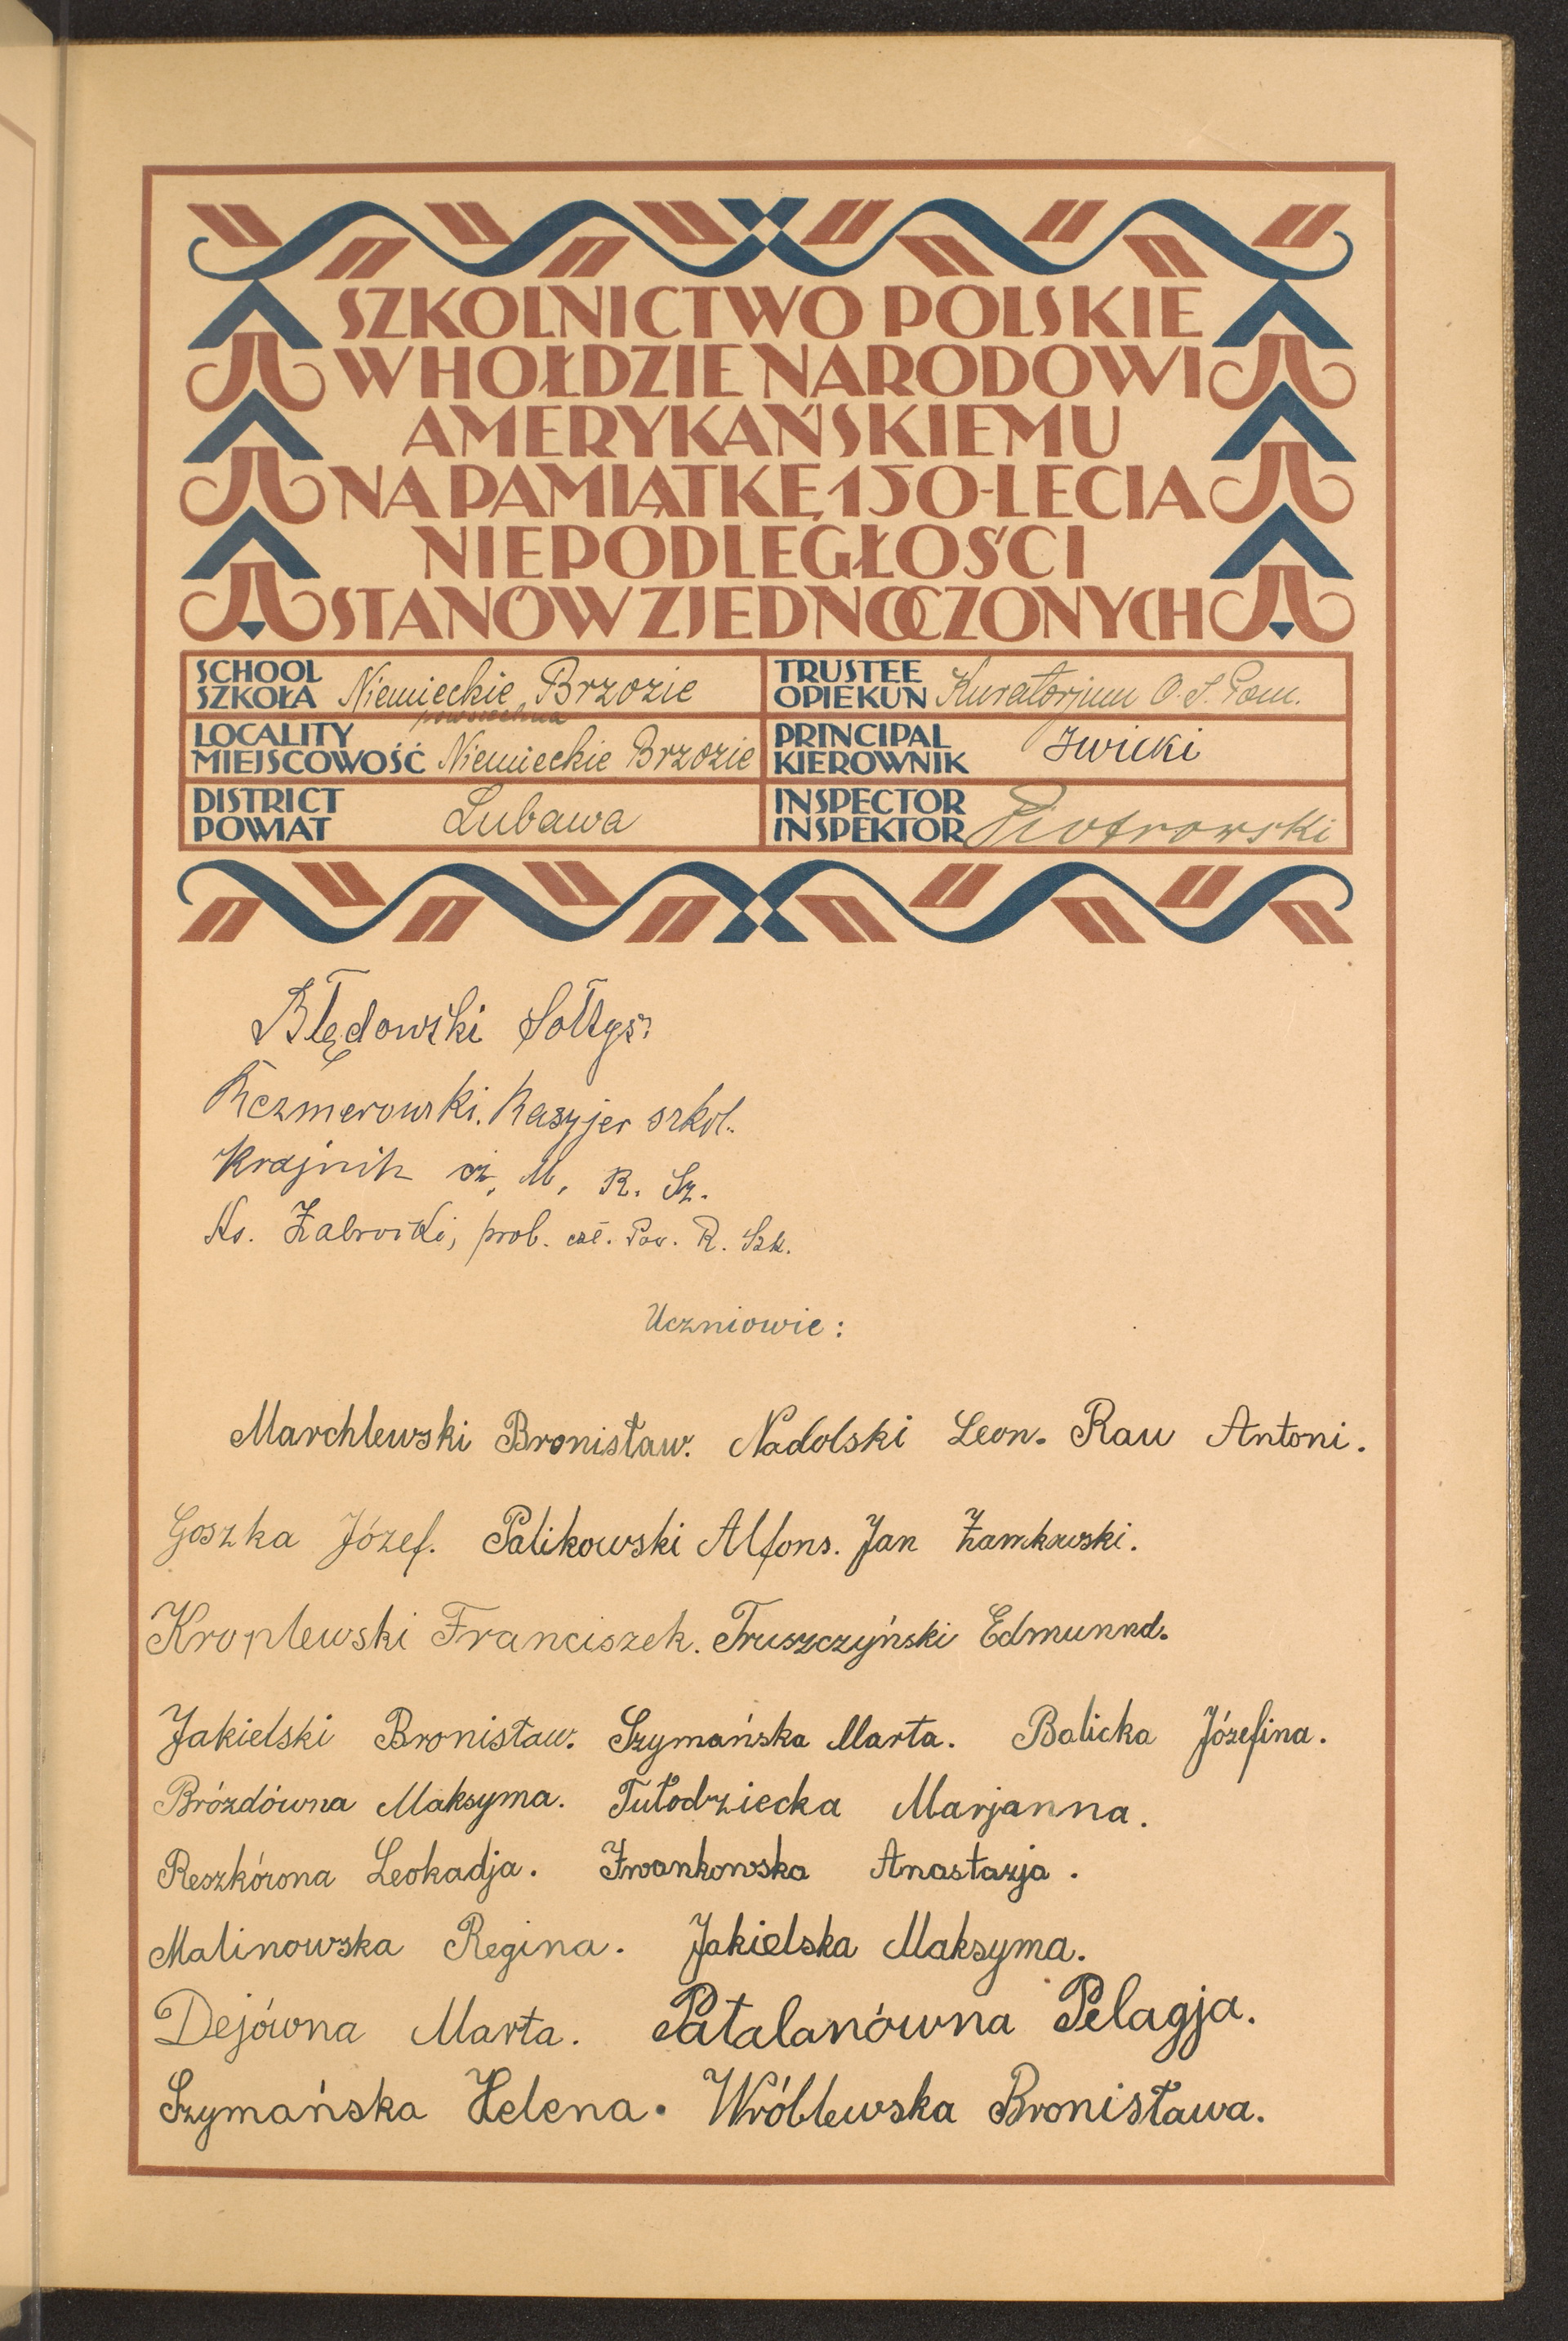 SZKOLNICTWO POLSKIE
W HOŁDZIE NARODOWI
AMERYKAŃSKIEMU
NA PAMIĄTKĘ 150-LECIA
NIEPODLEGŁOŚCI
STANÓW ZJEDNOCZONYCH
SCHOOL
SZKOŁA Niemieckie Brzozie
powszechna
TRUSTEE
OPIEKUN Kuratorjum O. S. Pom.
LOCALITY
MIEJSCOWOŚĆ Niemieckie Brzozie
PRINCIPAL
KIEROWNIK Iwicki
DISTRICT
POWIAT Lubawa
INSPECTOR
INSPEKTOR Piotrowski
Błędowski Sołtys.
Kczmerowski. Kasyjer szkol.
Krajnik cz. M. R. Sz.
Ks. Zabrocki, prob. czł. Pow. R. Szk.
Uczniowie:
Marchlewski Bronisław. Nadolski Leon. Rau Antoni.
Goszka Józef. Palikowski Alfons. Jan Zamkowski.
Kroplewski Franciszek. Truszczyński Edmunnd.
Jakielski Bronisław. Szymańska Marta. Balicka Józefina.
Brózdówna Maksyma. Tułodziecka Marjanna.
Reszkówna Leokadja. Iwankowska Anastazja.
Malinowska Regina. Jakielska Maksyma.
Dejówna Marta. Patalanówna Pelagja.
Szymańska Helena. Wróblewska Bronisława.